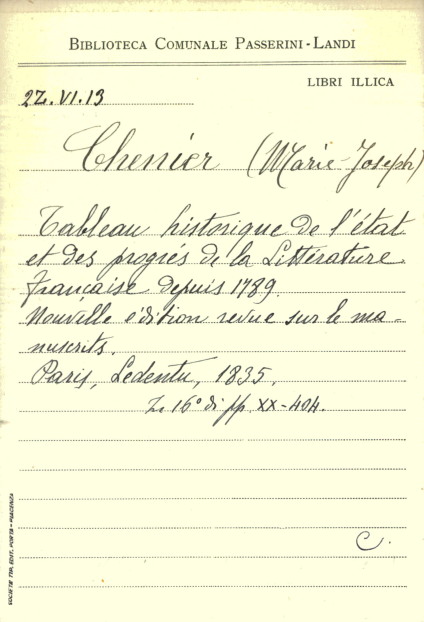 BIBLIOTECA COMUNALE PASSERINI-LANDI
LIBRI ILLICA
2Z.VI.13
Chenier (Marie-Joseph)
Tableau historique de l'état
et des progrés de la Littérature
française depuis 1789.
Nouvelle édition revue sur le ma-
nuscrits.
Paris, Ledentu, 1835.
Z. 16° di pp. XX-404.
C.
SOCIETÀ TIP. EDIT. PORTA - PIACENZA